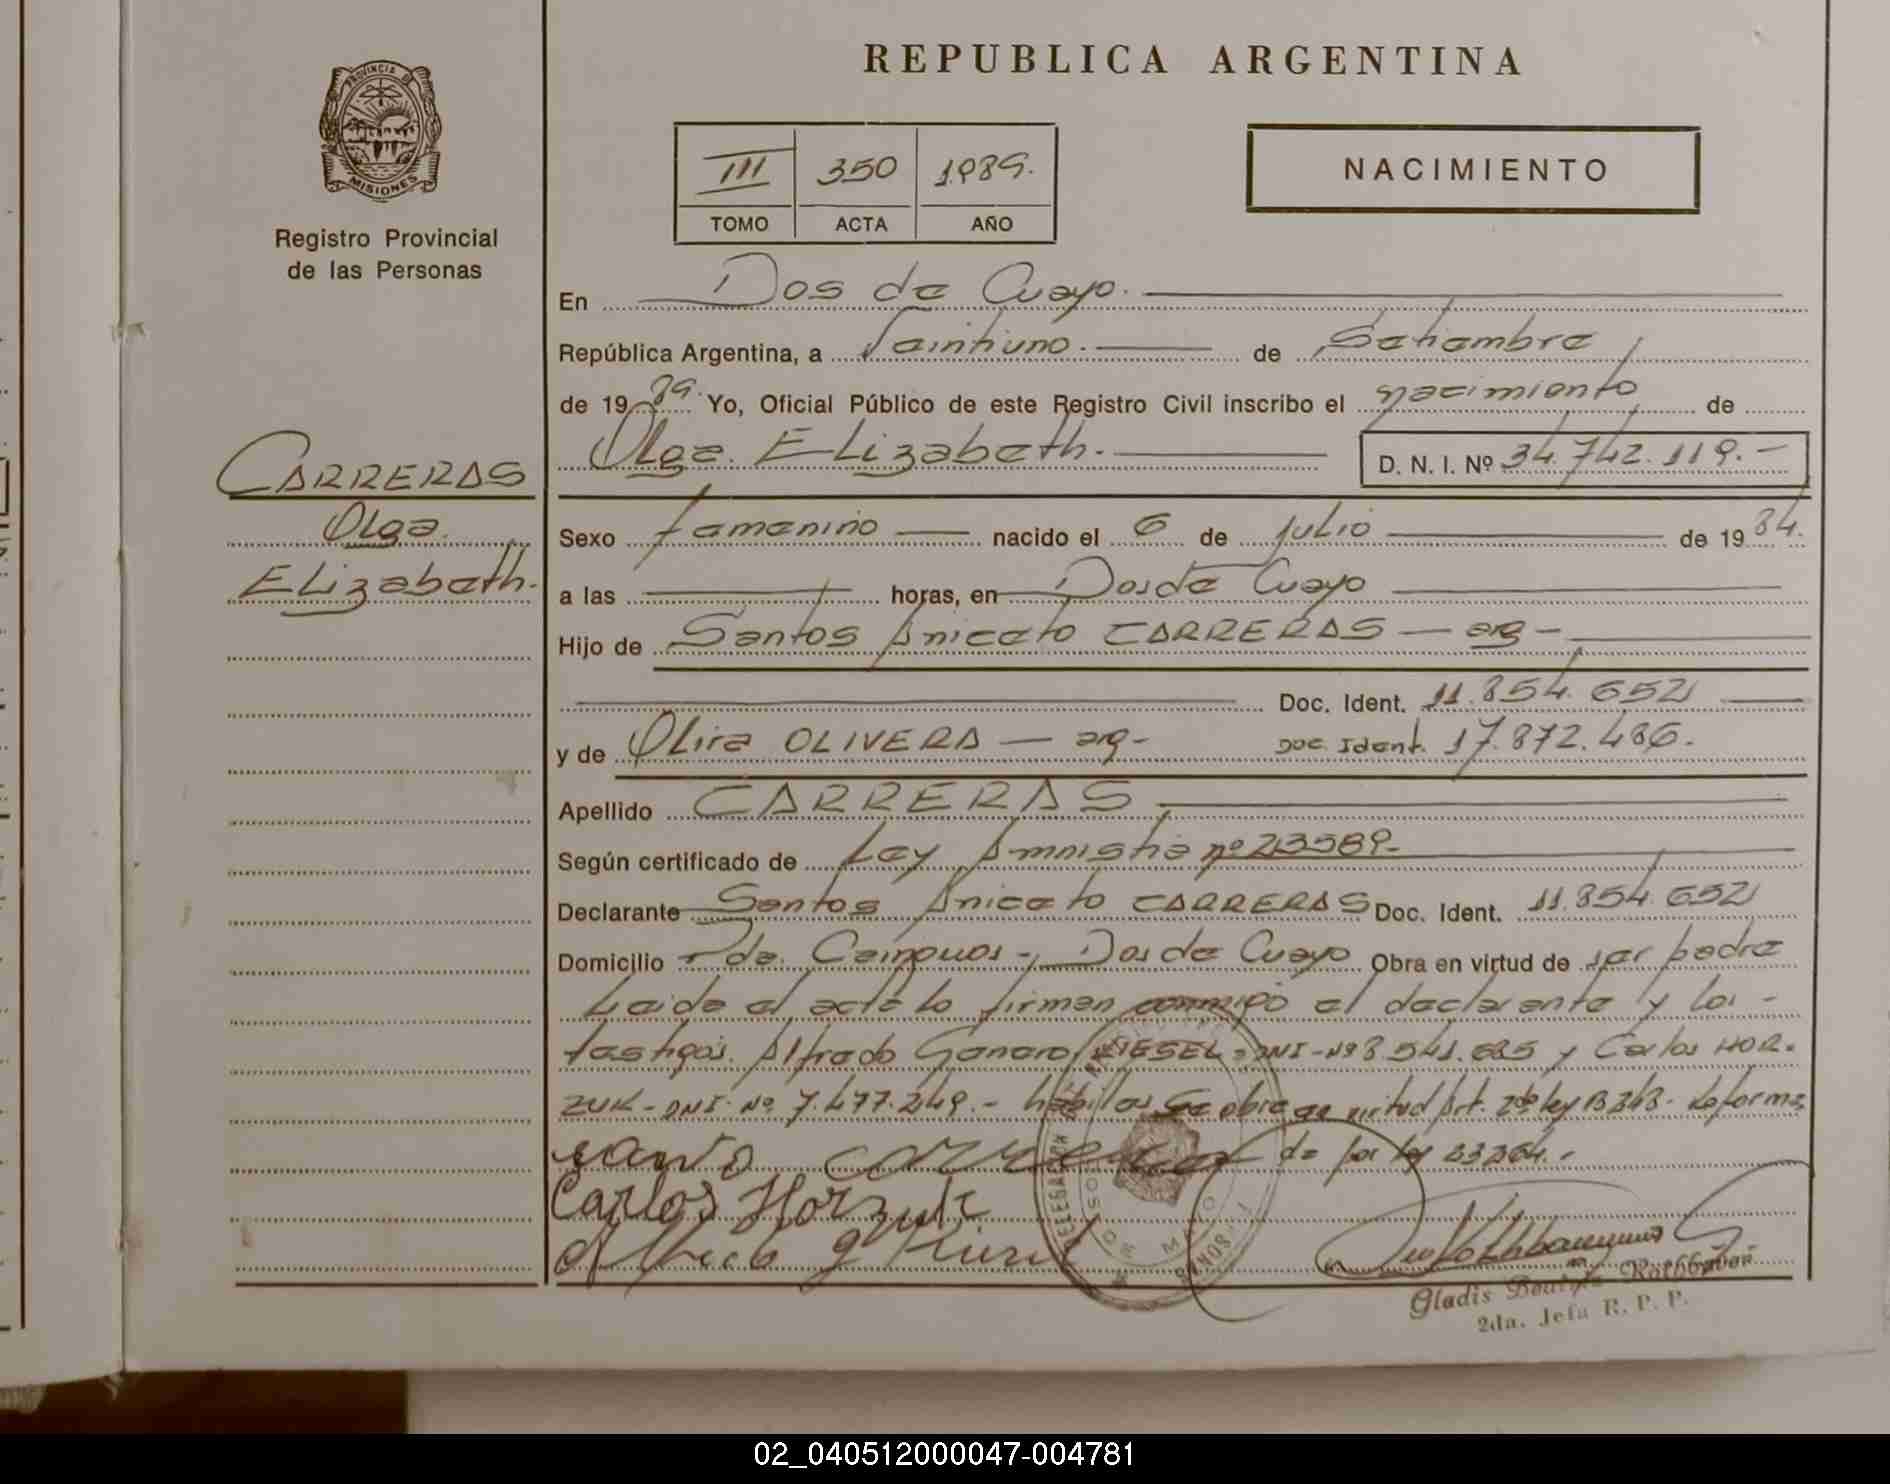 REPUBLICA ARGENTINA
PROVINCIA DE
MISIONES
Registro Provincial
de las Personas
III 350 1989.
TOMO ACTA AÑO
NACIMIENTO
En Dos de Mayo.
República Argentina, a Veintiuno. de Setiembre
de 1989. Yo, Oficial Público de este Registro Civil inscribo el nacimiento de
Olga Elizabeth. D. N. I. Nº 34.742.119.-
CARRERAS
Olga
Elizabeth.
Sexo femenino nacido el 6 de julio de 1984.
a las horas, en Dos de Mayo
Hijo de Santos Aniceto CARRERAS - arg -
Doc. Ident. 11.854.652
y de Olira OLIVERA - arg - Doc. Ident. 17.872.486.
Apellido CARRERAS
Según certificado de Ley Amnistia nº 23589-
Declarante Santos Aniceto CARRERAS Doc. Ident. 11.854.652
Domicilio Pda. - Dos de Mayo Obra en virtud de ser padre
Leida el acta lo firman conmigo el declarante y los -
testigos. Alfredo Genaro KIESEL - DNI - Nº 8.541.685 y Carlos HOR-
ZUK - DNI. Nº 7.477.249. - hábiles Se obra en virtud Art. 2do ley 18248. Reforma
da por ley 23264. -
Santo Carrera
Carlos Horzuk
DELEGACION
DOS DE MAYO
MISIONES
Gladis Rothbauer
2da. Jefa R. P. P.
02_040512000047-004781